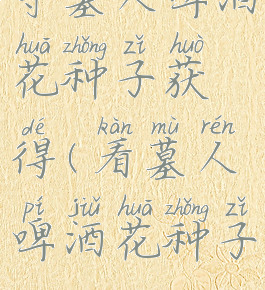 守墓人啤酒
huā zhǒng zǐ huò
花种子获
dé kàn mù rén
得(看墓人
pí jiǔ huā zhǒng zǐ
啤酒花种子